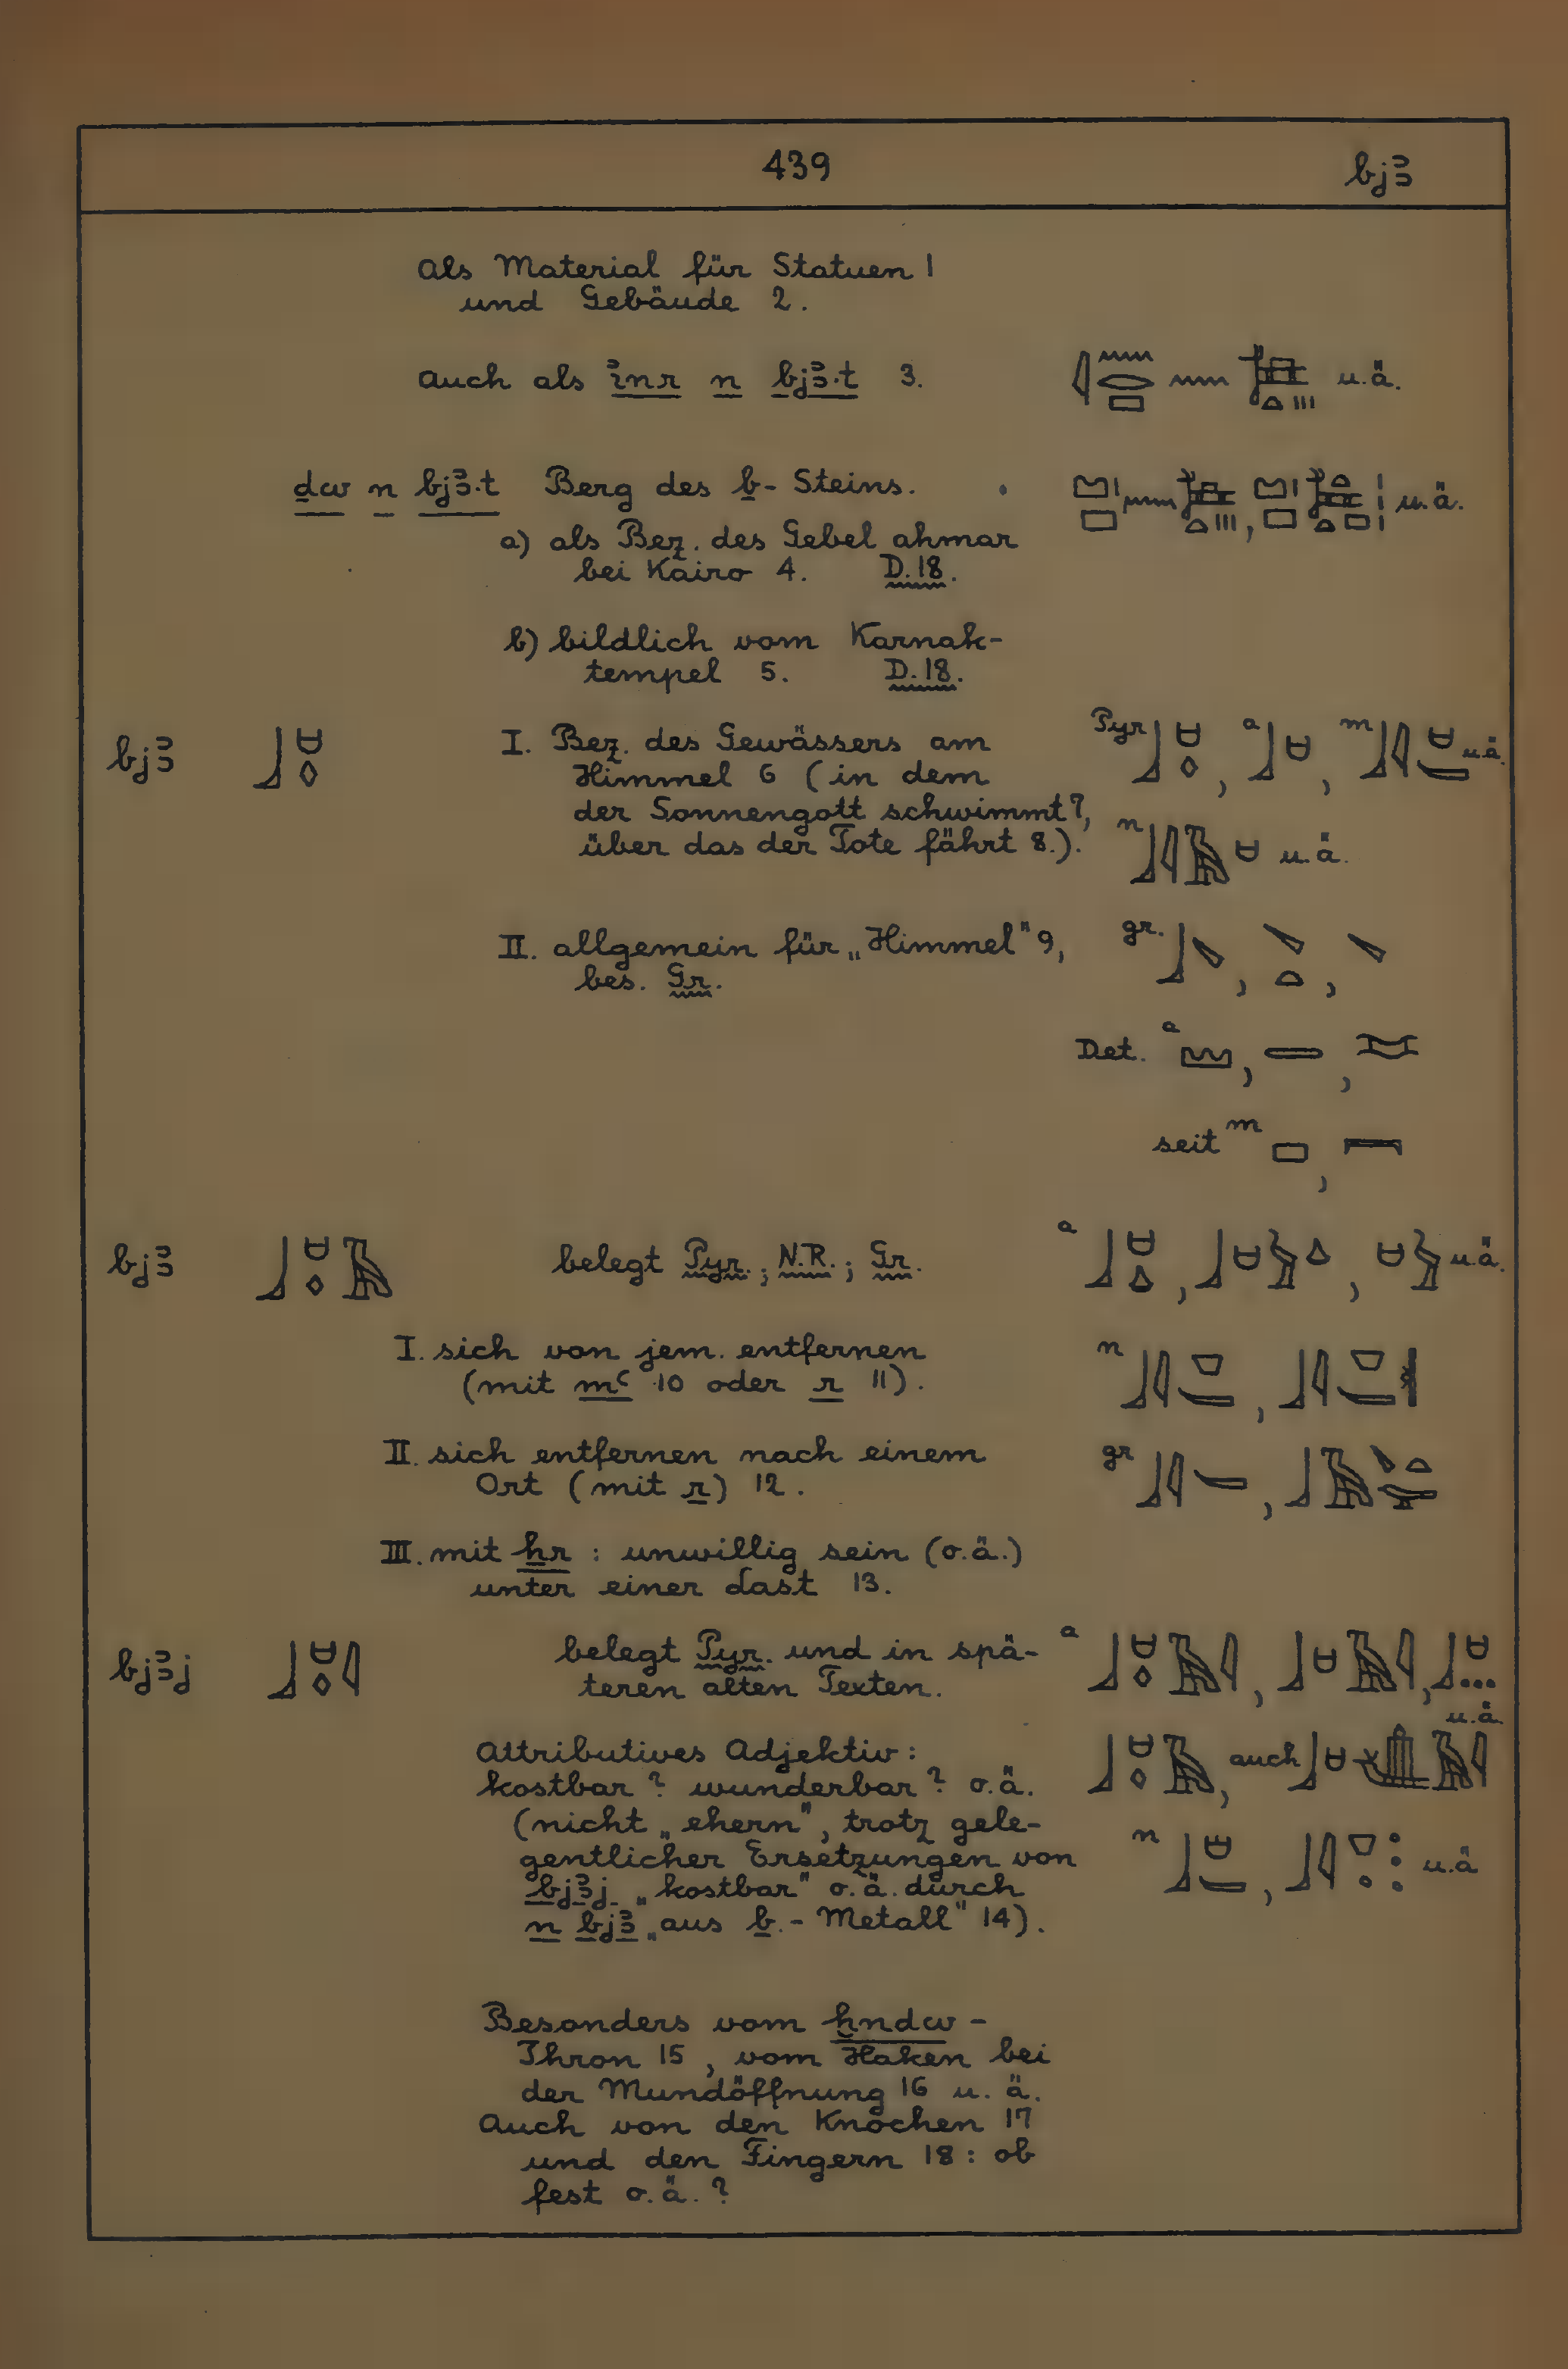 439 bjꜣ
als Material für Statuen 1
und Gebäude 2.
auch als ꞽnr n bjꜣ·t 3. u.ä.
ḏw n bjꜣ·t Berg des b- Steins. u.ä.
a) als Bez. des Gebel ahmar
bei Kairo 4. D.18.
b) bildlich vom Karnak-
tempel 5. D.18.
bjꜣ I. Bez. des Gewässers am Pyr a m u.ä.
Himmel 6 (in dem
der Sonnengott schwimmt 7, n
über das der Tote fährt 8.). u.ä.
II. allgemein für „Himmel" 9, gr.
bes. Gr.
Det. a
seit m
bjꜣ belegt Pyr.; N.R.; Gr. a u.ä.
I. sich von jem. entfernen n
(mit mꜥ 10 oder r 11).
II. sich entfernen nach einem gr
Ort (mit r) 12.
III. mit ẖr : unwillig sein (o.ä.)
unter einer Last 13.
bjꜣj belegt Pyr. und in spä- a
teren alten Texten. u.ä.
Attributives Adjektiv: auch
kostbar? wunderbar? o.ä.
(nicht „ehern", trotz gele- n
gentlicher Ersetzungen von u.ä
bjꜣj „kostbar" o.ä. durch
n bjꜣ „aus b.- Metall" 14).
Besonders vom ḫndw -
Thron 15, vom Haken bei
der Mundöffnung 16 u. ä.
Auch von den Knochen 17
und den Fingern 18: ob
fest o.ä.?